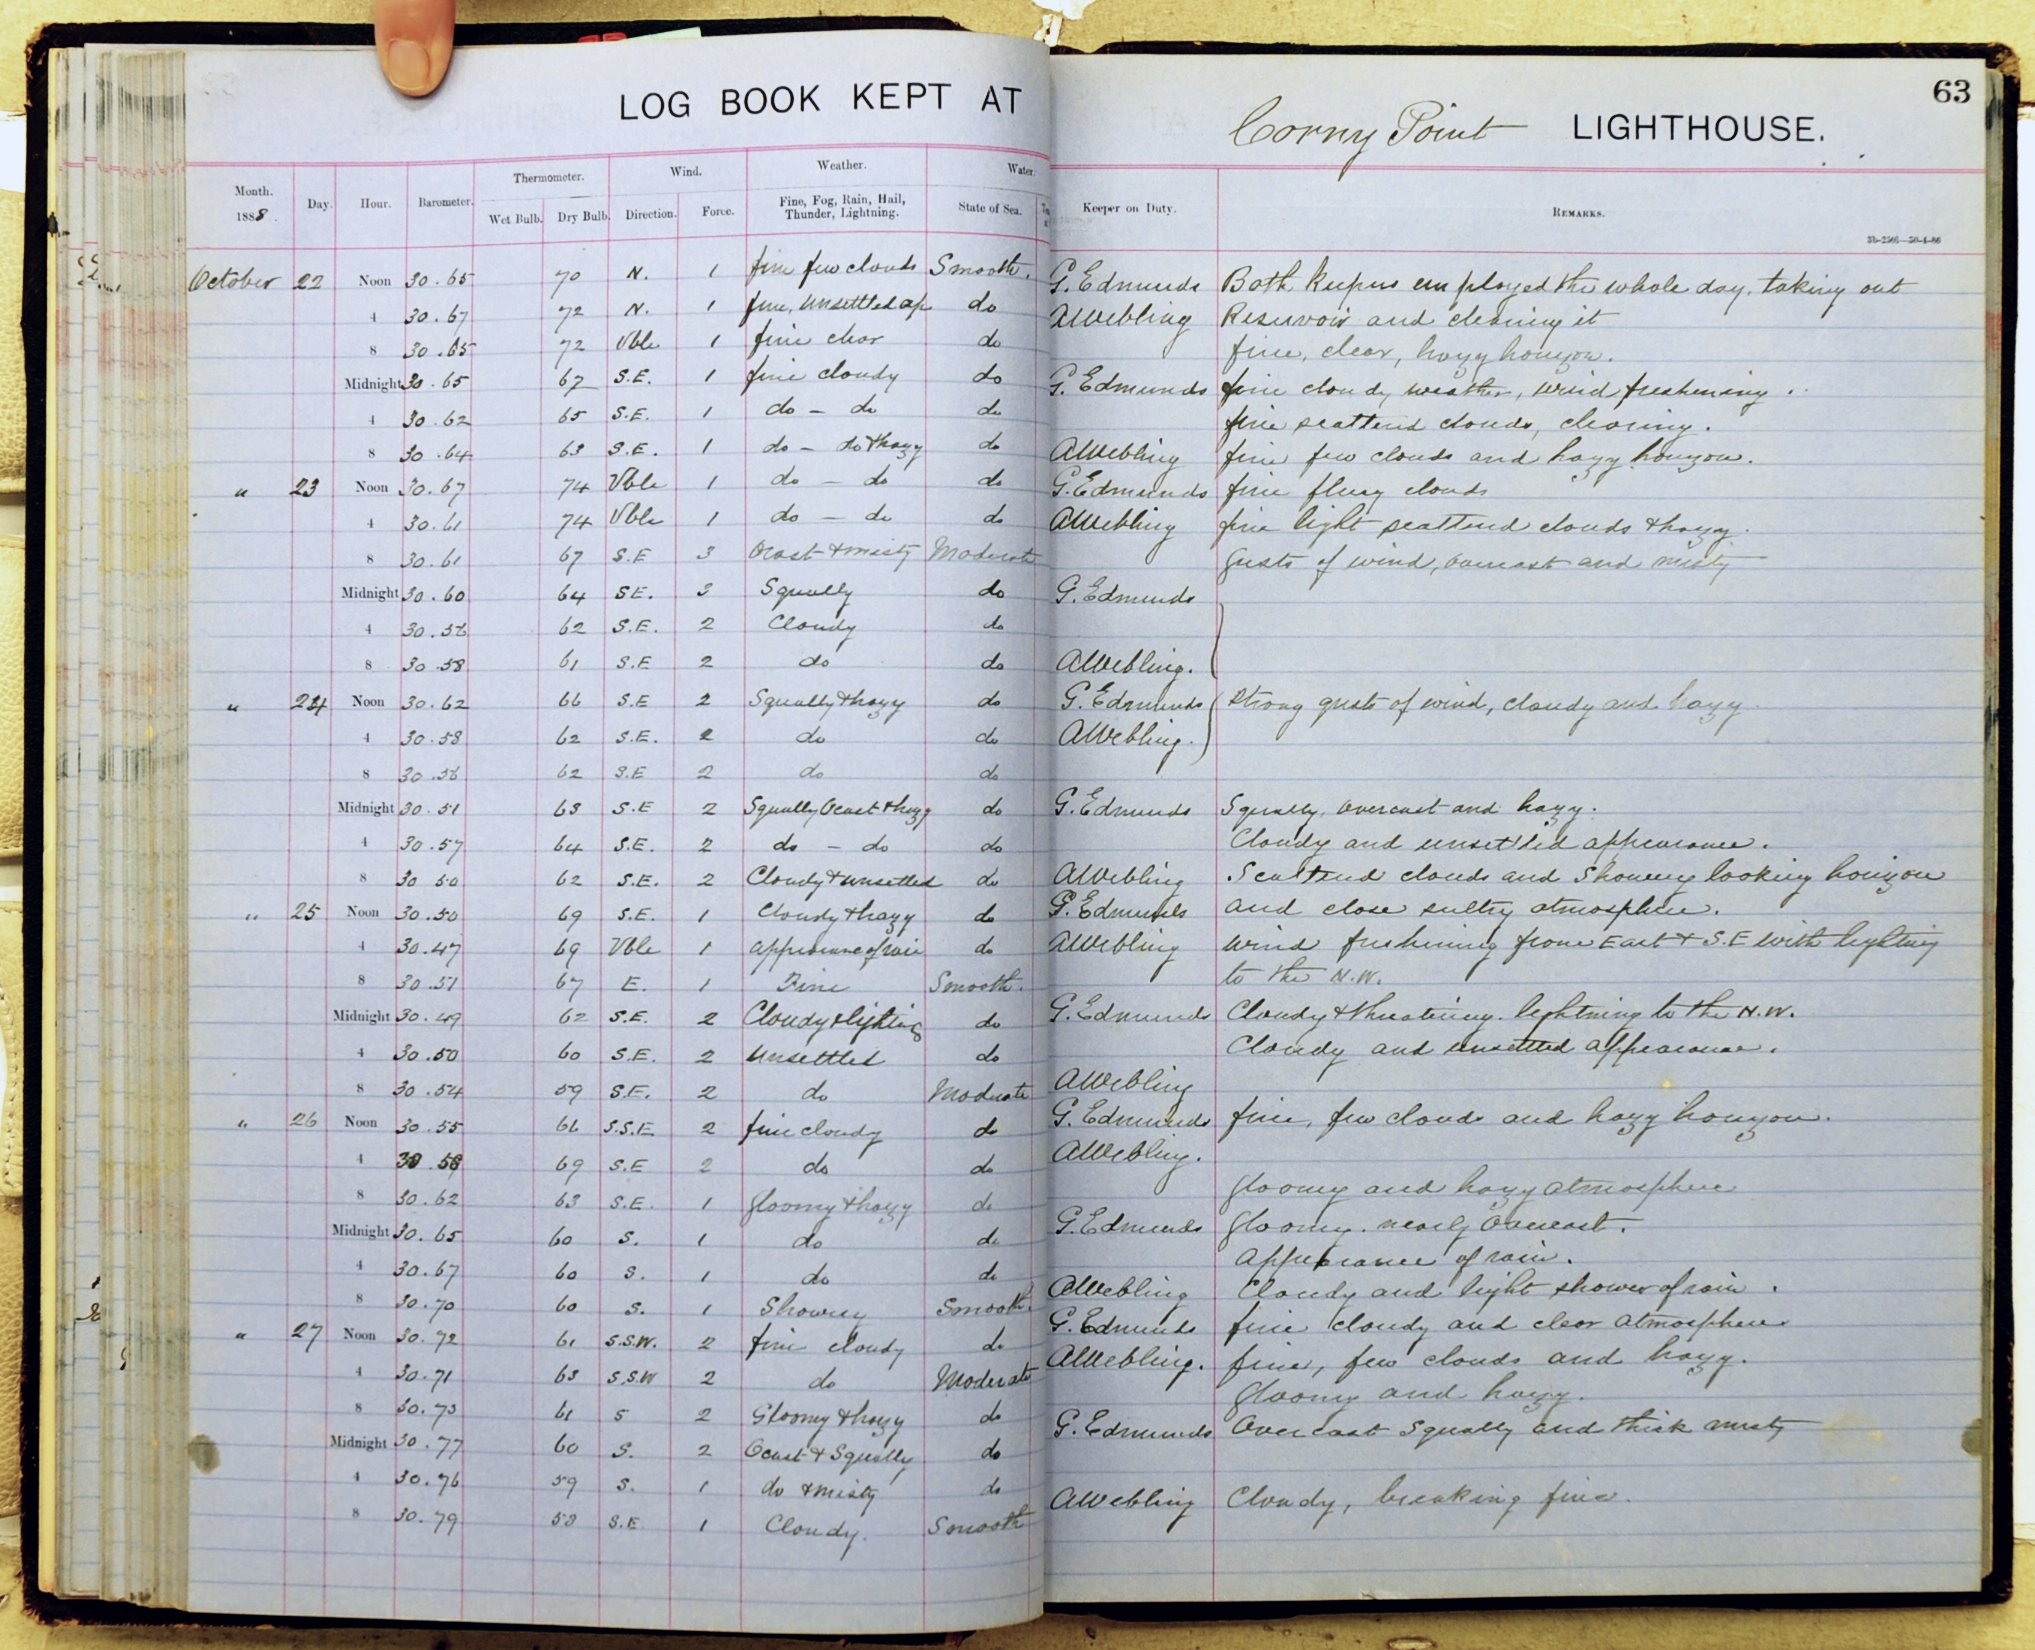 LOG BOOK KEPT AT Corny Point LIGHTHOUSE.
63
Month. 1888. Day. Hour. Barometer. Thermometer. Wet Bulb. Dry Bulb. Wind. Direction. Force. Weather. Fine, Fog, Rain, Hail, Thunder, Lightning. Water. State of Sea. Keeper on Duty. REMARKS.
October 22 Noon 30.65 70 N. 1 fine few clouds Smooth. G. Edmunds Both keepers employed the whole day, taking out
4 30.67 72 N. 1 fine, unsettled ap do AWebling Reservoir and cleaning it
8 30.65 72 Vble 1 fine clear do fine, clear, hazy horizon.
Midnight 30.65 67 S.E. 1 fine cloudy do G. Edmunds fine cloudy weather, wind freshening.
4 30.62 65 S.E. 1 do – do do fine scatterd clouds, clearing.
8 30.64 63 S.E. 1 do – do & hazy do AWebling fine few clouds and hazy horizon.
" 23 Noon 30.67 74 Vble 1 do – do do G. Edmunds fine clouds
4 30.61 74 Vble 1 do – do do AWebling fine light scatterd clouds & hazy.
8 30.61 67 S.E 3 Ocast & misty Moderate Gusts of wind, overcast and misty
Midnight 30.60 64 SE. 3 Squally do G. Edmunds
4 30.56 62 S.E. 2 Cloudy do
8 30.58 61 S.E 2 do do AWebling.
" 24 Noon 30.62 66 S.E 2 Squally & hazy do G. Edmunds Strong gusts of wind, cloudy and hazy
4 30.58 62 S.E. 2 do do AWebling.
8 30.56 62 S.E 2 do do
Midnight 30.51 63 S.E 2 Squally Ocast & hazy do G. Edmunds Squally, overcast and hazy.
4 30.57 64 S.E. 2 do – do do Cloudy and unsettled appearance.
8 30 50 62 S.E. 2 Cloudy & unsettled do AWebling Scatterd clouds and Showery looking horizon
" 25 Noon 30.50 69 S.E. 1 Cloudy & hazy do G. Edmunds and close sultry atmosphere.
4 30.47 69 Vble 1 appearance of rain do AWebling Wind freshening from East & S.E with lightning
8 30.51 67 E. 1 Fine Smooth. to the N.W.
Midnight 30.49 62 S.E. 2 Cloudy & lightning do G. Edmunds Cloudy & threatening. lightning to the N.W.
4 30.50 60 S.E. 2 Unsettled do Cloudy and unsettled appearance.
8 30.54 59 S.E. 2 do Moderate AWebling
" 26 Noon 30.55 66 S.S.E. 2 fine cloudy do G. Edmunds fine, few clouds and hazy horizon.
4 30 58 69 S.E 2 do do AWebling.
8 30.62 63 S.E. 1 gloomy & hazy do gloomy and hazy atmosphere
Midnight 30.65 60 S. 1 do do G. Edmunds gloomy. nearly overcast.
4 30.67 60 S. 1 do do appearance of rain.
8 30.70 60 S. 1 Showery Smooth. AWebling Cloudy and light shower of rain.
" 27 Noon 30.72 61 S.S.W. 2 fine cloudy do G. Edmunds fine cloudy and clear atmosphere
4 30.71 63 S.S.W 2 do Moderate AWebling. fine, few clouds and hazy.
8 30.73 61 S 2 Gloomy & hazy do gloomy and hazy.
Midnight 30.77 60 S. 2 Ocast & Squally do G. Edmunds Overcast Squally and thick misty
4 30.76 59 S. 1 do & misty do
8 30.79 58 S.E. 1 Cloudy. Smooth AWebling Cloudy, breaking fine.